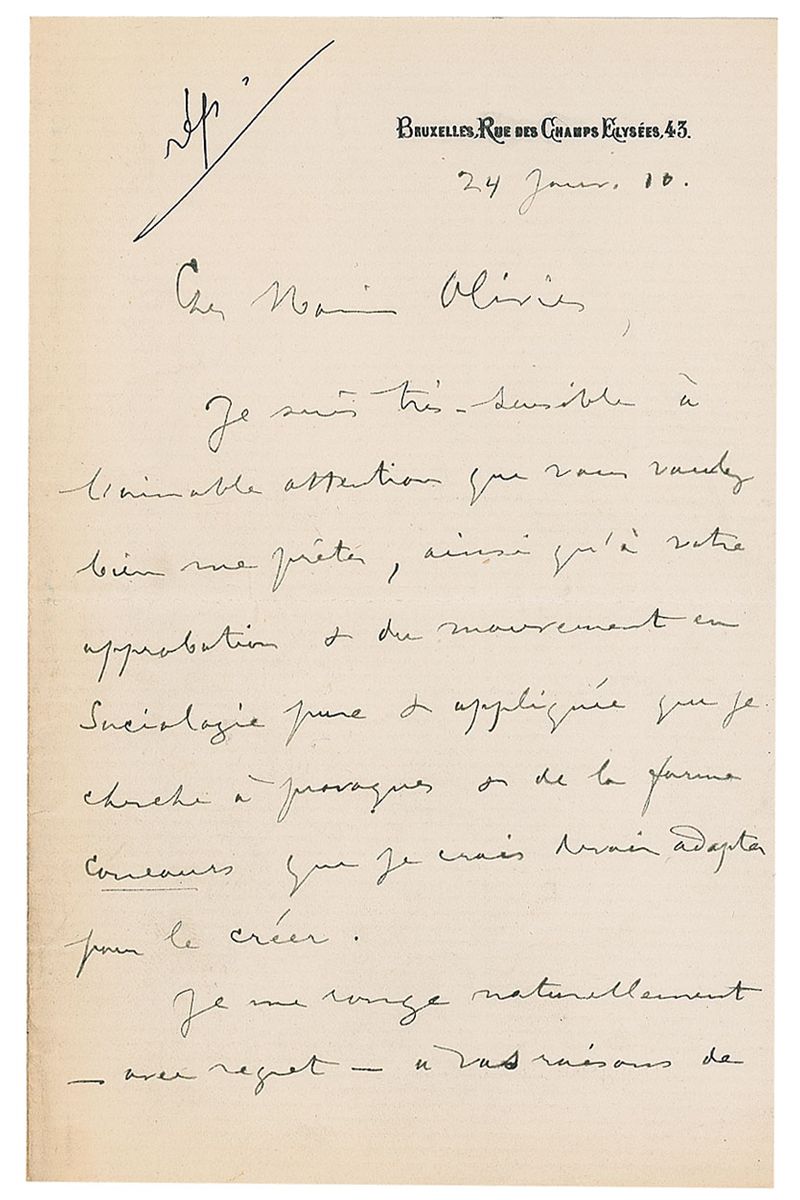 rép.
BRUXELLES, RUE DES CHAMPS ELYSÉES, 43.
24 Janv. 10.
Cher Monsieur Olivier,
Je suis très-sensible à
l'aimable attention que vous voulez
bien me prêter, ainsi qu'à votre
approbation & du mouvement en
Sociologie pure & appliquée que je
cherche à provoquer & de la forme
concours que je crois devoir adopter
pour le créer.
Je me range naturellement
— avec regret — à vos raisons de